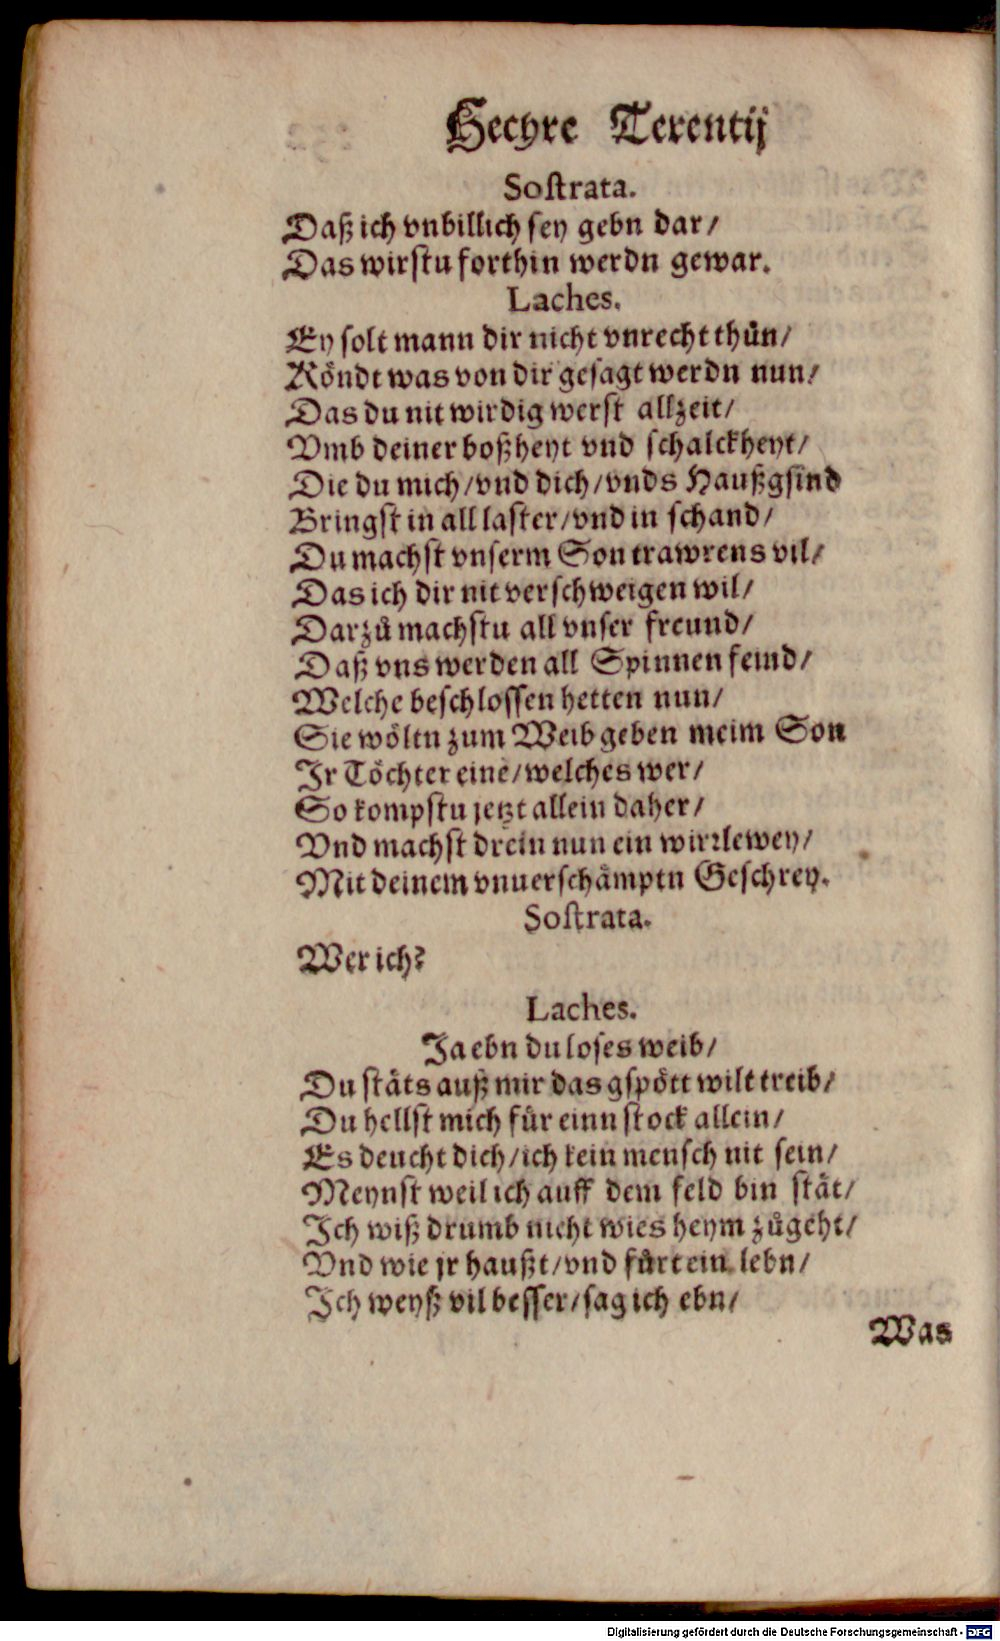 Hecyre Terentij
Sostrata.
Daß ich vnbillich sey gebn dar/
Das wirstu forthin werdn gewar.
Laches.
Ey solt mann dir nicht vnrecht thůn/
Köndt was von dir gesagt werdn nun/
Das du nit wirdig werst allzeit/
Vmb deiner boßheyt vnd schalckheyt/
Die du mich/vnd dich/vnds Haußgsind
Bringst in all laster/vnd in schand/
Du machst vnserm Son trawrens vil/
Das ich dir nit verschweigen wil/
Darzů machstu all vnser freund/
Daß vns werden all Spinnen feind/
Welche beschlossen hetten nun/
Sie wöltn zum Weib geben meim Son
Jr Töchter eine/welches wer/
So kompstu jetzt allein daher/
Vnd machst drein nun ein wirrlewey/
Mit deinem vnuerschämptn Geschrey.
Sostrata.
Wer ich?
Laches.
Ja ebn du loses weib/
Du stäts auß mir das gspött wilt treib/
Du hellst mich für einn stock allein/
Es deucht dich/ich kein mensch nit sein/
Meynst weil ich auff dem feld bin stät/
Ich wiß drumb nicht wies heym zůgeht/
Vnd wie jr haußt/vnd fürt ein lebn/
Ich weyß vil besser/sag ich ebn/
Was
Digitalisierung gefördert durch die Deutsche Forschungsgemeinschaft - DFG